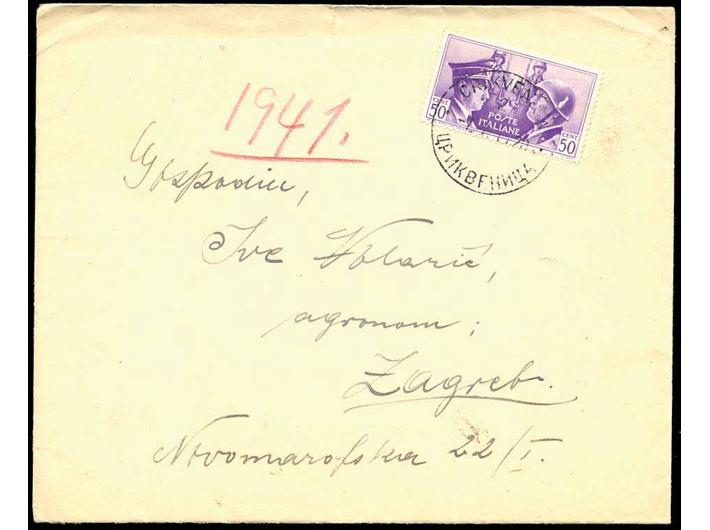 1941.
50
CENT
POSTE
ITALIANE
CENT
50
ЦРИКВЕНИЦА
Gospodin,
Ive Volarić,
agronom;
Zagreb.
Novomarofska 22/I.